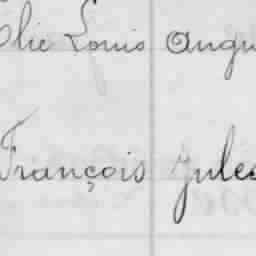 Elie Louis Augu
François Jules